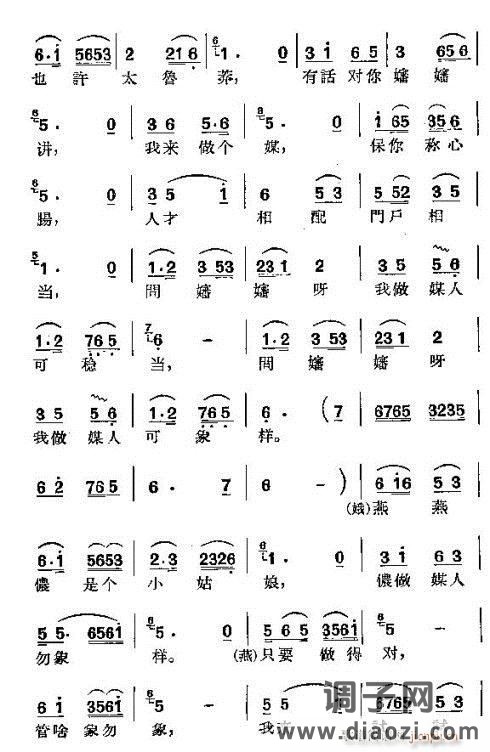 6·1 5653 | 2 216 | 1· 0 | 3 1 6 5 | 3 656
也許太魯莽，有話对你嬸嬸
5· 0 | 3 6 5·6 | 5· 0 | 1 65 35 6
讲，我来做个媒，保你称心
5· 0 | 3 5 1 | 6 5 3 | 5 52 3 5
腸，人才相配門戶相
1· 0 | 1·2 3 53 | 2 3 1 2 | 3 5 5 6
当，問嬸嬸呀我做媒人
1·2 7 6 5 | 6 - | 1·2 3 53 | 2 3 1 2
可稳当，問嬸嬸呀
3 5 5 6 | 1·2 7 6 5 | 6· (7 | 6765 3235
我做媒人可象样。
6 2 7 6 5 | 6· 7 | 6 - ) | 6 16 5 3
(娥)燕燕
6·1 5653 | 2·3 2326 | 1· 0 | 3 1 6 3
儂是个小姑娘，儂做媒人
5 5· 6561 | 5· 0 | 5 6 5 3561 | 5 -
勿象样。(燕)只要做得对，
6 1 6561 | 5 - | 2· 5 | 6765 5 3
管啥象勿象，我
调子网
www.diaozi.com